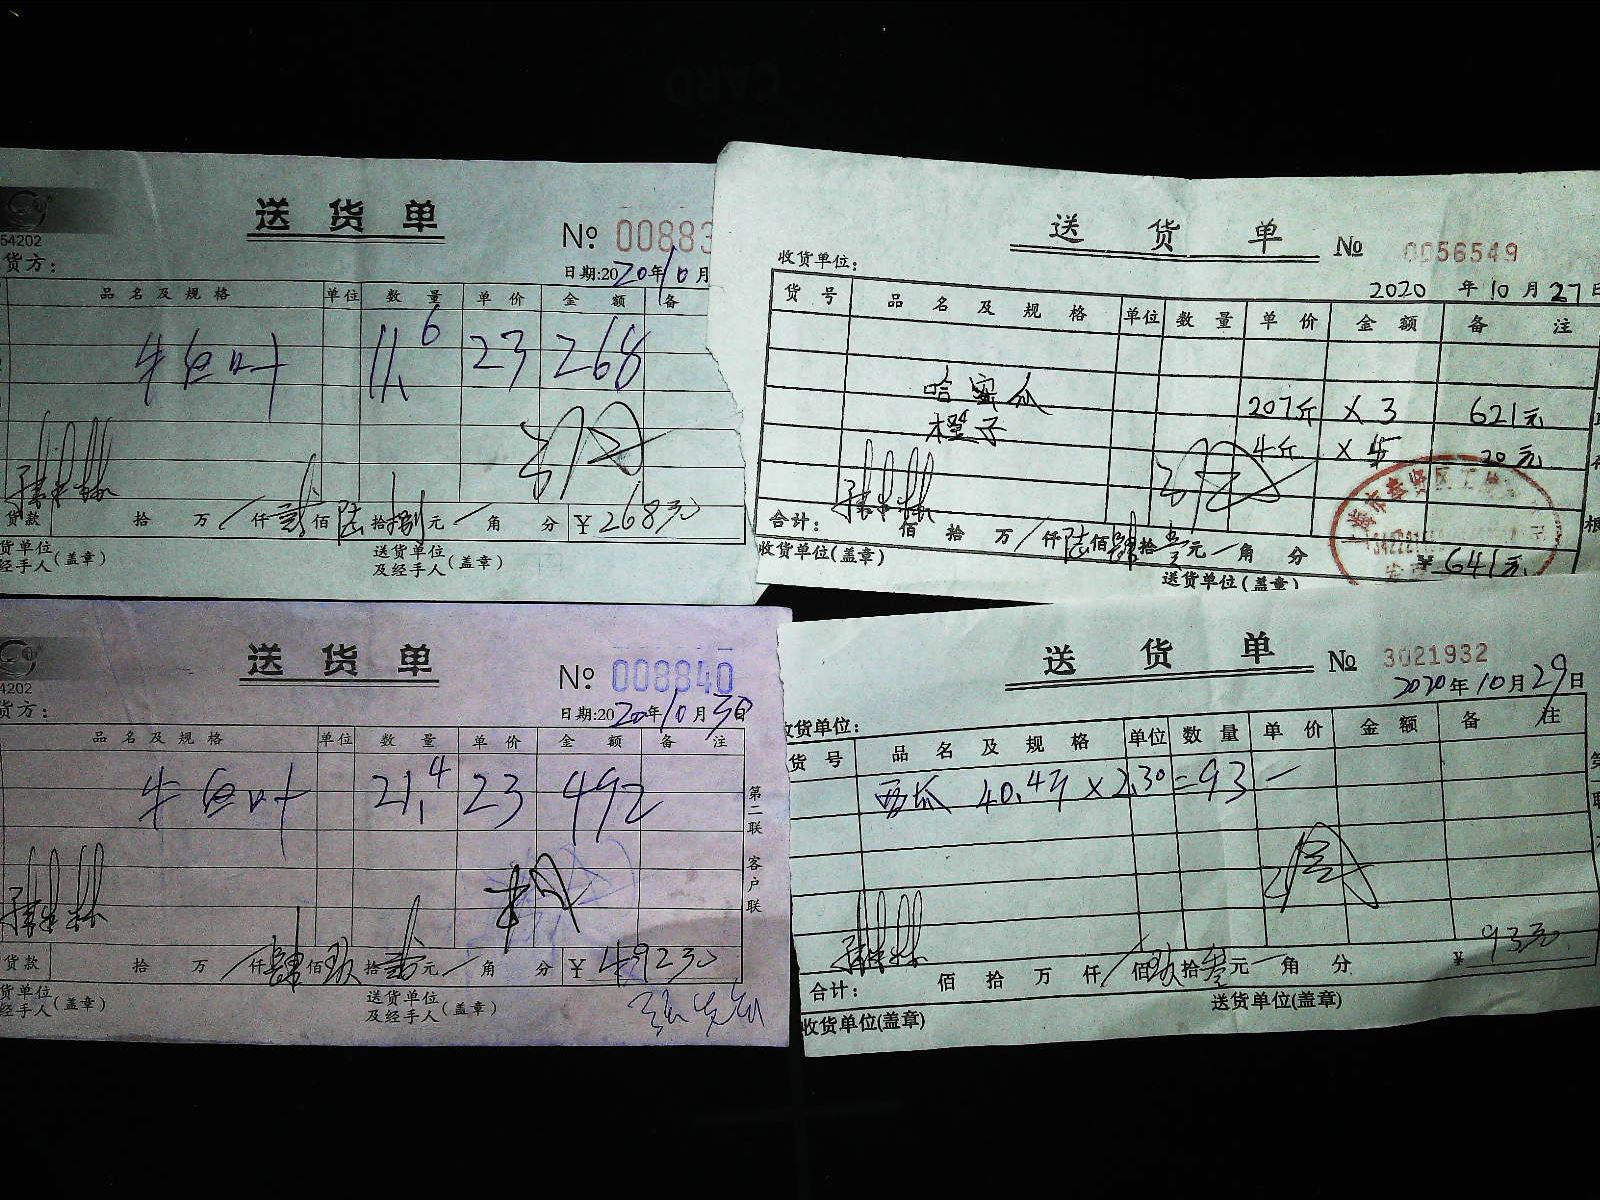 CARD
送货单
№ 00883
54202
货方：
日期:2020年10月
品名及规格 单位 数量 单价 金额 备
牛百叶 11.6 23 268
货款 拾 万 / 仟 贰 佰 陆 拾 捌 元 一 角 分 ¥ 268元
货单位
经手人(盖章)
送货单位
及经手人(盖章)
送货单
№ 0056549
收货单位：
2020 年 10 月 27 日
货号 品名及规格 单位 数量 单价 金额 备注
哈蜜瓜 207斤 × 3 621元
橙子 4斤 × 5 20元
合计： 佰 拾 万 / 仟 陆 佰 肆 拾 壹 元 一 角 分 ¥ 641元
收货单位(盖章)
送货单位(盖章)
送货单
№ 008840
4202
货方：
日期:2020年10月30日
品名及规格 单位 数量 单价 金额 备注
牛百叶 21.4 23 492
第二联 客户联
货款 拾 万 / 仟 肆 佰 玖 拾 贰 元 一 角 分 ¥ 492元
货单位
经手人(盖章)
送货单位
及经手人(盖章)
送货单
№ 3021932
2020年10月29日
收货单位：
货号 品名及规格 单位 数量 单价 金额 备注
西瓜 40.4斤×2.30=93一
合计： 佰 拾 万 仟 / 佰 玖 拾 叁 元 一 角 分 ¥ 93元
收货单位(盖章)
送货单位(盖章)